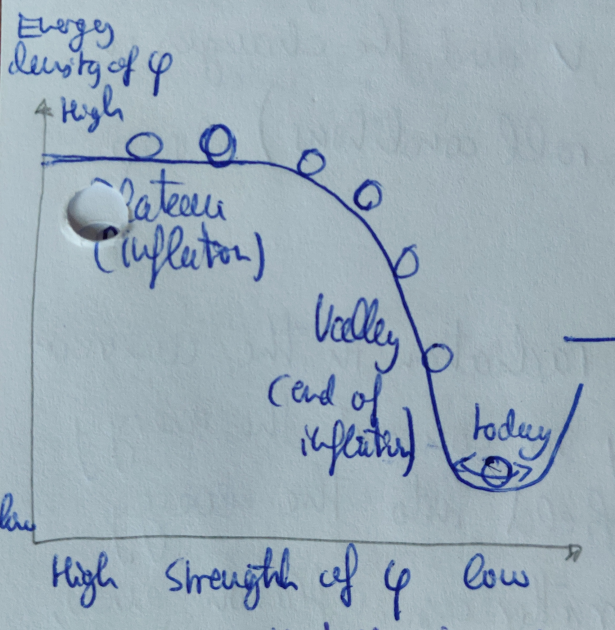 Energy
density of φ
High
Plateau
(inflation)
Valley
(end of
inflation)
today
low
High Strength of φ low